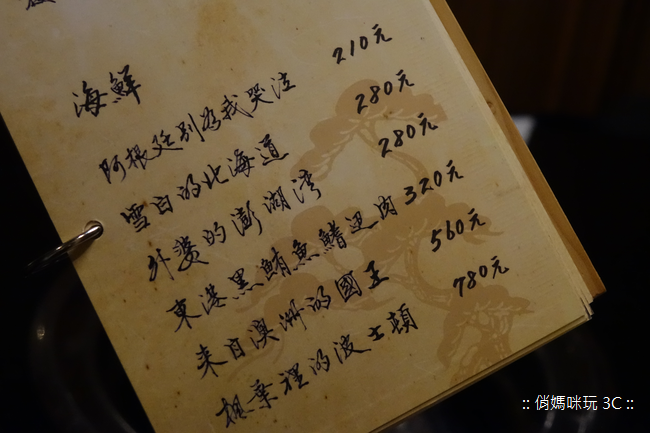 海鮮
阿根廷別為我哭泣 210元
雪白的北海道 280元
外婆的澎湖灣 280元
東港黑鮪魚鰭迴肉 320元
來自澳洲的國王 560元
楓葉裡的波士頓 780元
:: 俏媽咪玩 3C ::